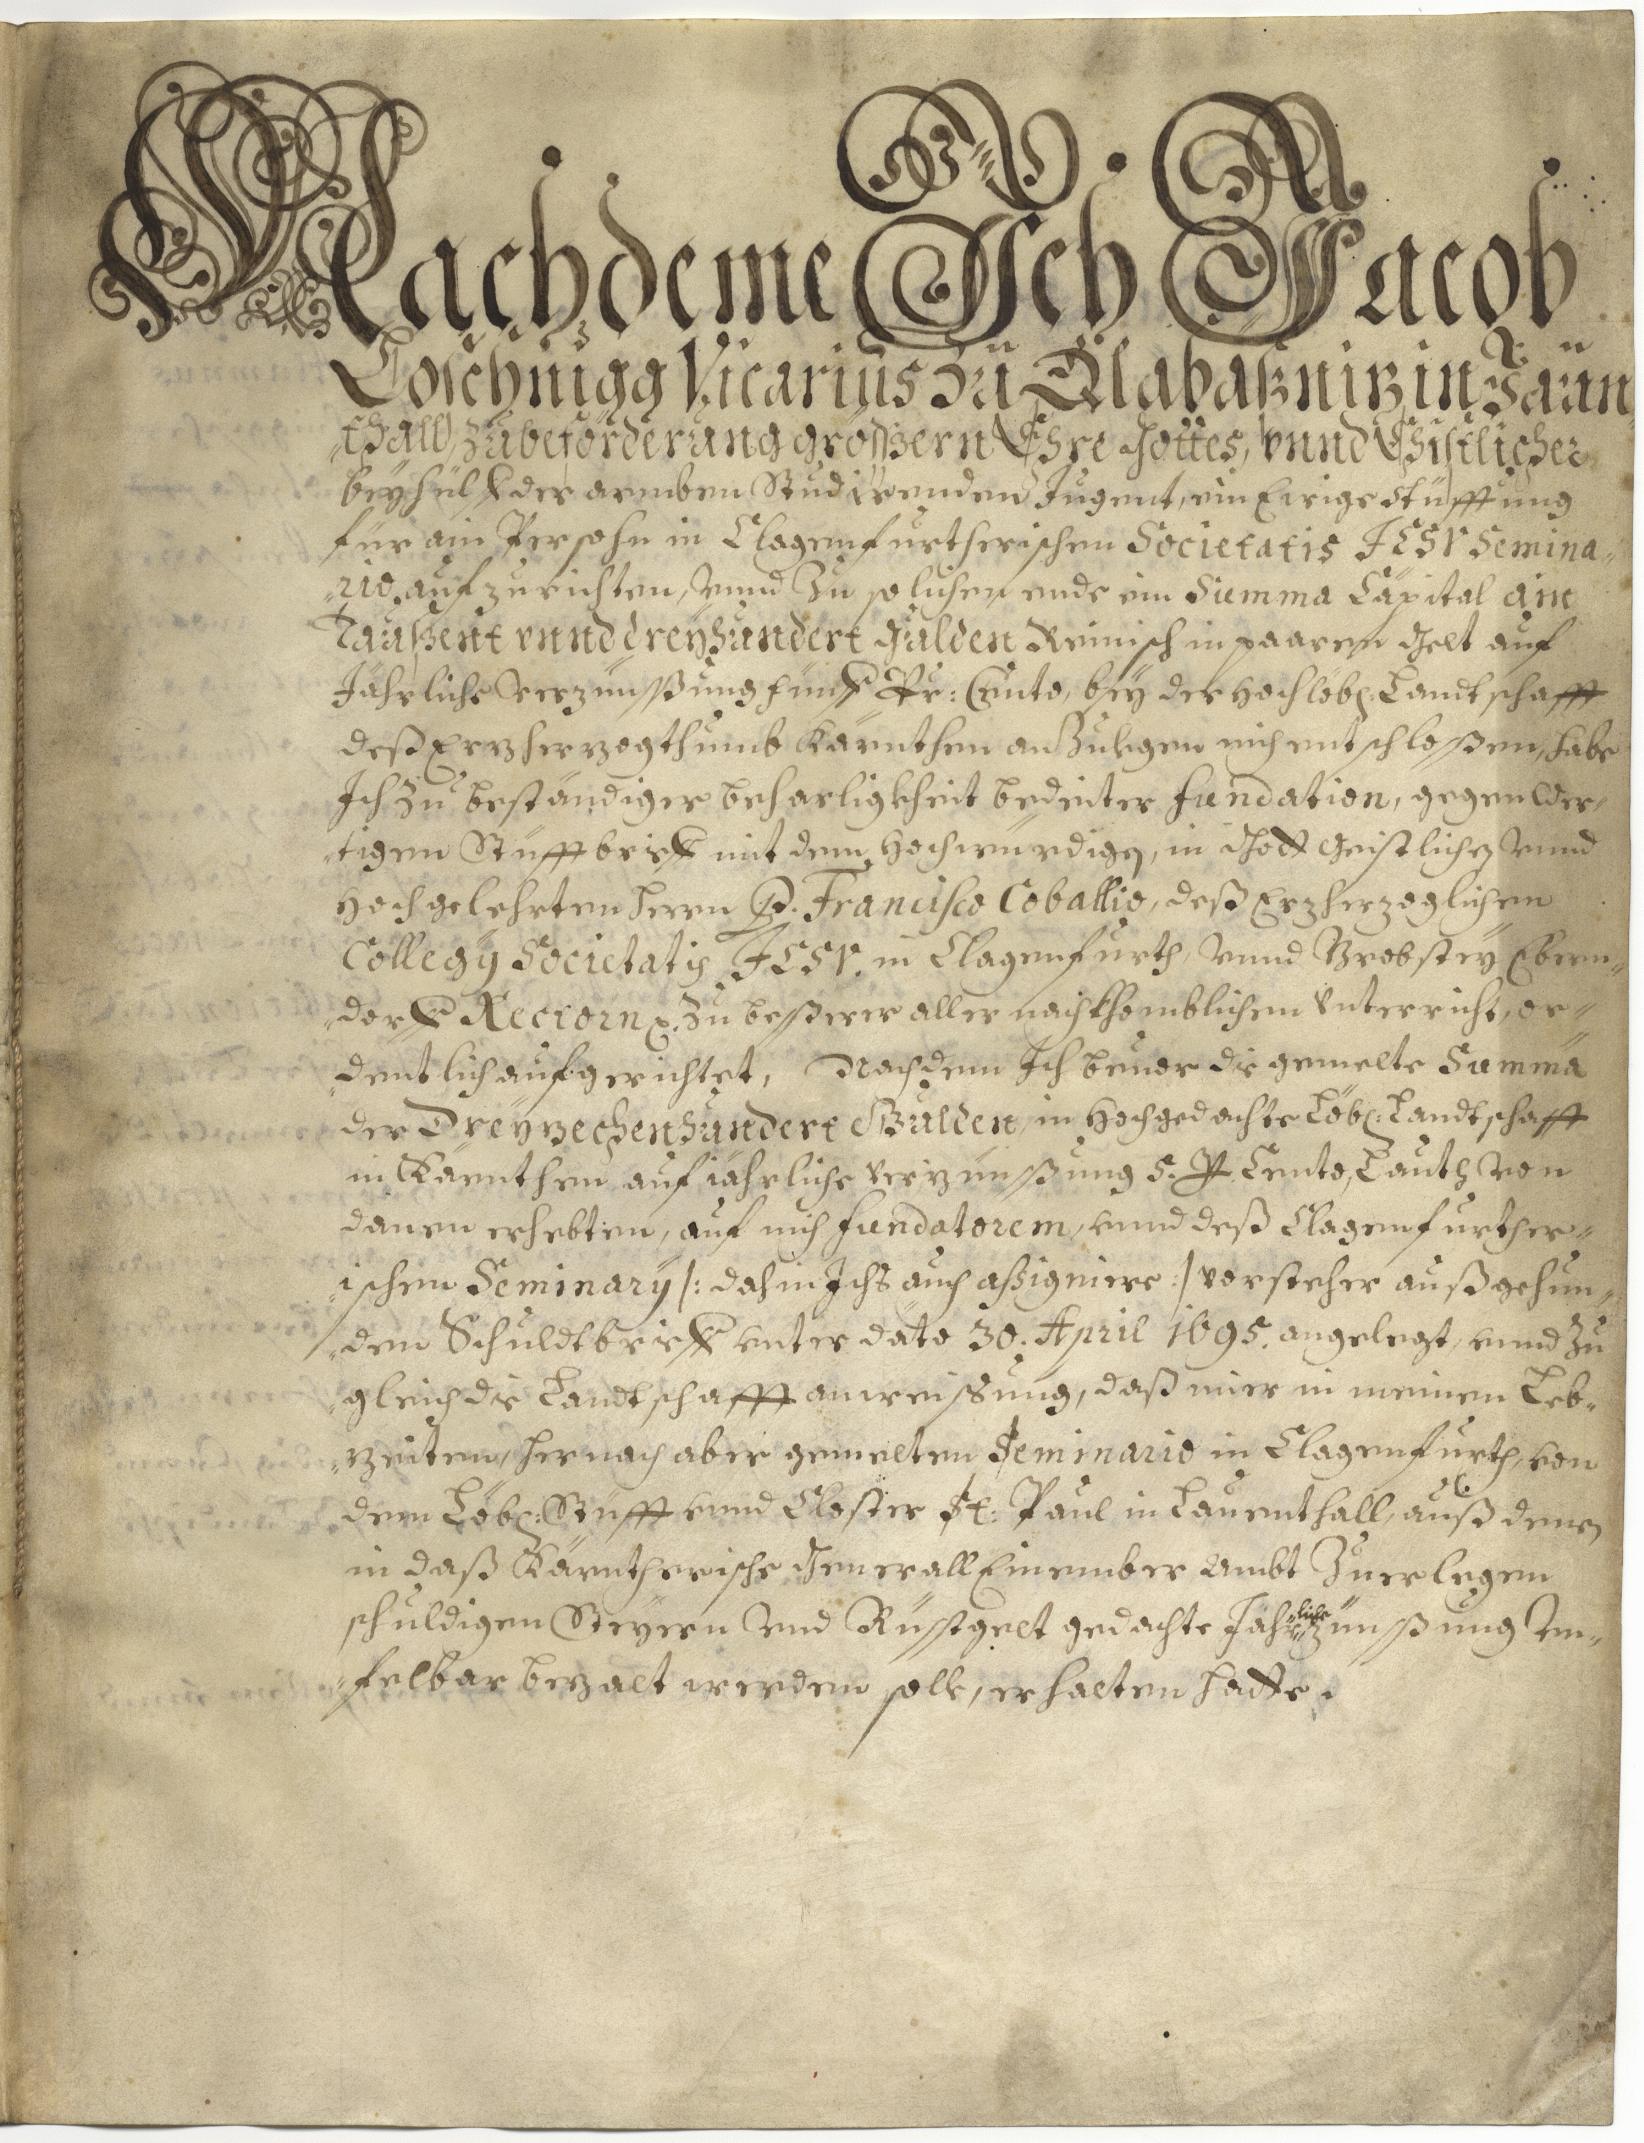 Nachdeme Ich Jacob
Toschnigg Vicarius zu Glabaßniz in Jaun¬
¬thall, zubeförderung größern Ehre Gottes, vnnd Christlicher
beyhülff der armben Studirenden Jugent, ein Ewige Stüfftung
für ain Persohn in Clagenfurtherischen Societatis JESV Semina¬
¬rio, aufzurichten, vnnd Zu solichen ende ein Summa Capital ain
Taußent vnnd dreyhundert Gulden Reinisch in paaren Gelt auf
Jährliche Verzünßung fünff Pr: Cento, bey der Hochlöbl: Landtschafft
deß Erzherzogthumb Kärnthen anZulegen mich entschloßen, habe
Ich Zu beständiger beharligkheit bedeiter fundation, gegenWer¬
¬tigen Stüfftbrieff mit dem Hochwürdigen, in Gott Geistlichen Vnnd
Hochgelehrten Herrn P. Francisco Coballio, deß Erzherzoglichen
Collegÿ Societatis JESV. in Clagenfurth, vnnd Brobstey Ebern¬
¬dorff Rectorn, Zu beßerer aller nachkhomblichen Vnterricht, or¬
¬dentlich aufgerichtet, Nachdem Ich beuor die gemelte Summa
der Dreyzechenhundert Gulden, in Hochgedachte Löbl: Landtschafft
in Kärnthen auf jährliche Verzünßung 5. Pr. Cento, Lauth von
danen erhebten, auf mich fundatorem, vnnd deß Clagenfurther¬
¬ischen Seminarÿ /: dahin Ichs auch aßigniere :/ Vorsteher außgehun¬
¬den Schuldtbrieff vnter dato 30. April 1695. angelegt, vnnd Zu
¬gleich die Landtschafft anweißung, daß mier in meinen Leb¬
¬zeiten, hernach aber gemelten Seminario in Clagenfurth, von
dem Löbl: Stüfft vnnd Closter St: Paul in Lauenthall, auß denen
in daß Kärntherische Generall Einember Ambt Zuerlegen
schuldigen Steyern Vnd Rüstgelt gedachte Jährliche Zünßung Vn¬
¬felbar bezalt werden solle, erhalten hatte.